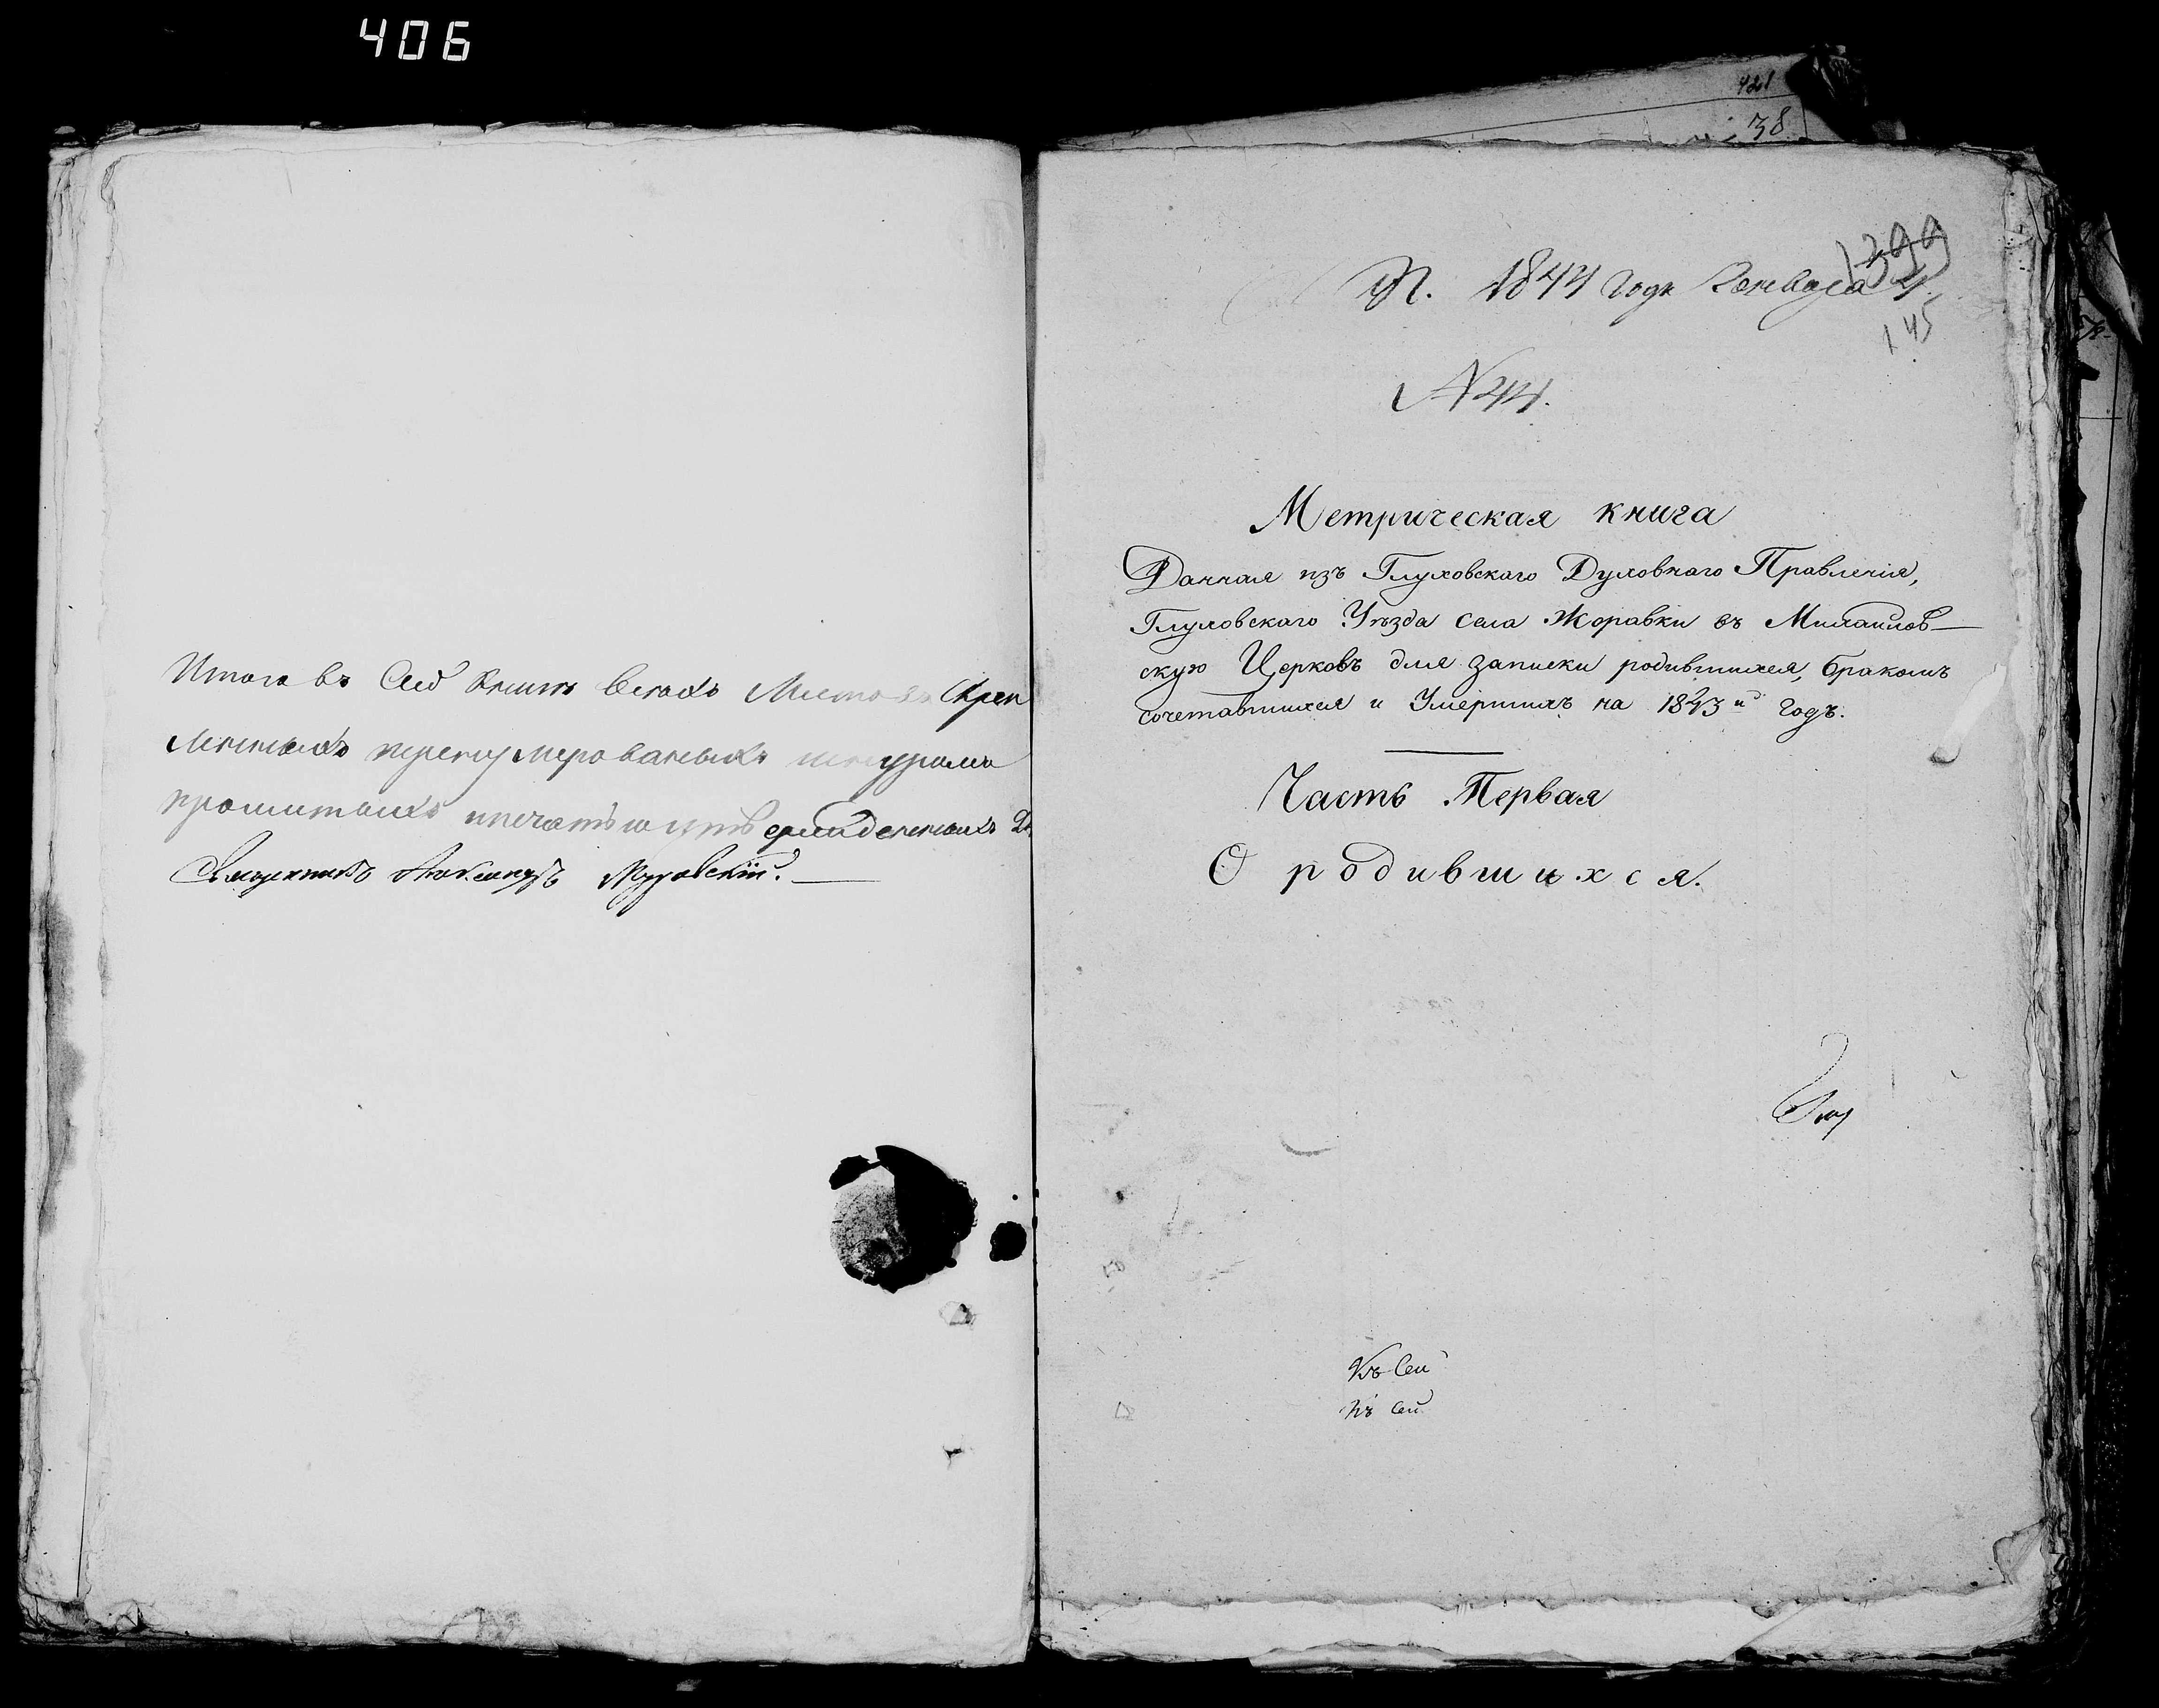 406
421
38
Итого въ Сей книги всехъ Листовъ Скреп
леныхъ перенумерованыхъ шнуромъ
прошитыхъ ипечатью утвержденныхъ
Священникъ Александръ Муровскій.
П. 1844 Года Генваря 4
399
145
N 44.
Метрическая книга
Данная изъ Глуховскаго Духовнаго Правленія,
Глуховскаго Уѣзда села Жоравки въ Михаилов-
скую Церковь для записки родившихся, бракомъ
сочетавшихся и Умершихъ на 1843й годъ.
Часть Первая
О родившихся.
Къ Сей
Къ сей